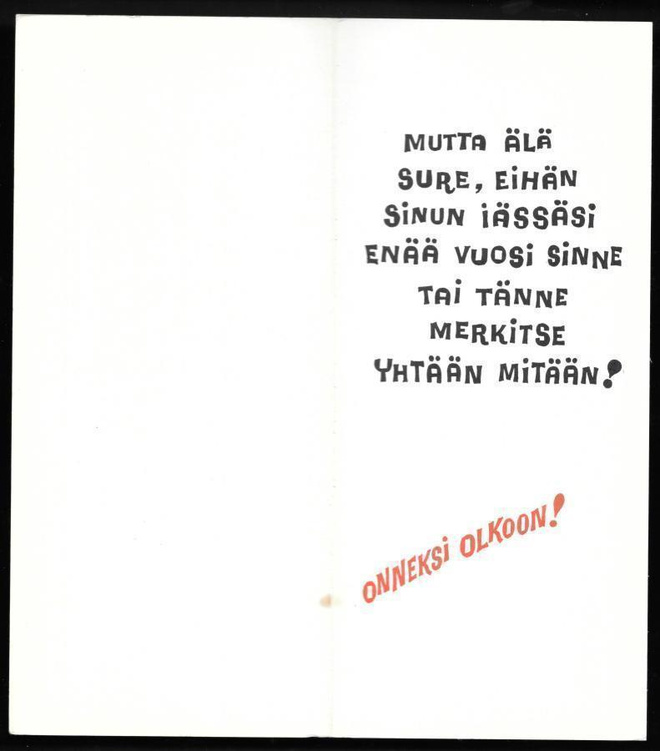 MUTTA ÄLÄ
SURE, EIHÄN
SINUN IÄSSÄSI
ENÄÄ VUOSI SINNE
TAI TÄNNE
MERKITSE
YHTÄÄN MITÄÄN!
ONNEKSI OLKOON!